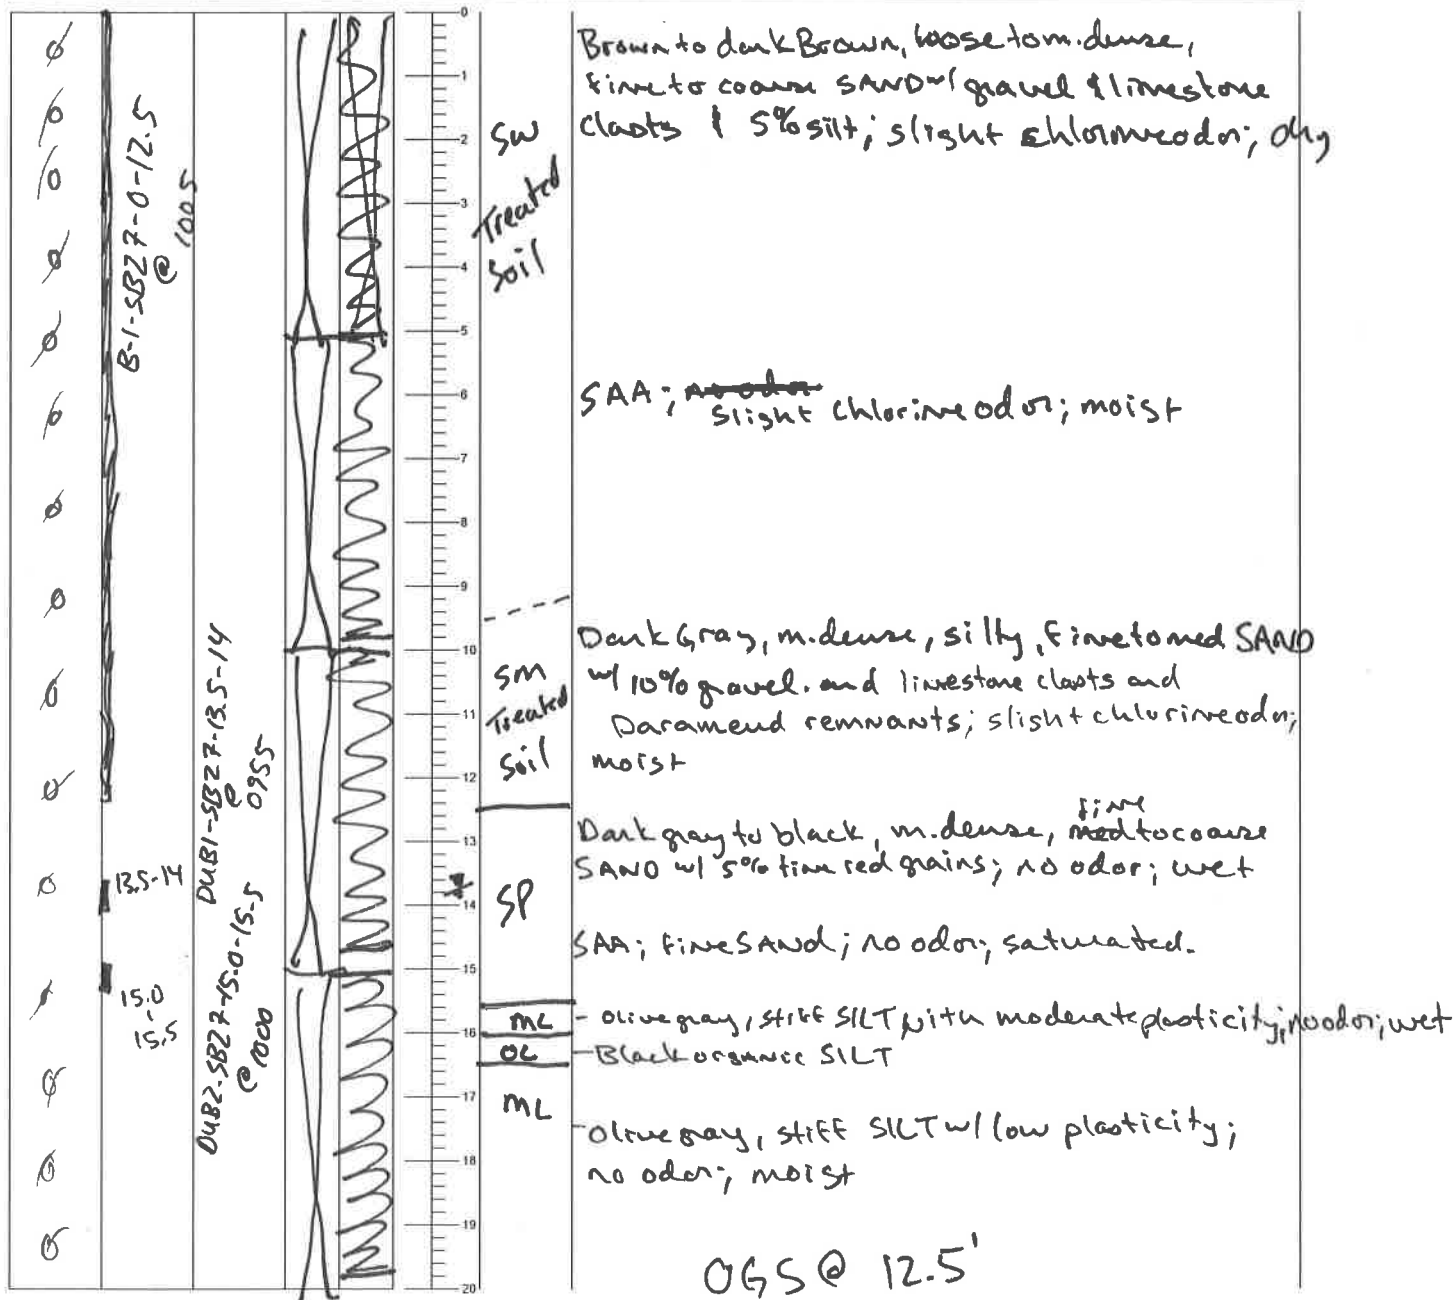 Ø
Ø
Ø
Ø
Ø
Ø
Ø
Ø
Ø
Ø
Ø
Ø
Ø
Ø
Ø
B-1-SB27-0-12.5
@
1005
13.5-14
15.0
15.5
DUB1-SB27-13.5-14
@
0955
DUB2-SB27-15.0-15.5
@1000
0
1
2
3
4
5
6
7
8
9
10
11
12
13
14
15
16
17
18
19
20
SW
Treated
Soil
SM
Treated
Soil
SP
ML
OL
ML
Brown to dark Brown, loose to m.dense,
fine to coarse SAND w/ gravel & limestone
clasts & 5% silt; slight chlorine odor; dry
SAA; no odor
slight chlorine odor; moist
Dark Gray, m.dense, silty, fine to med SAND
w/ 10% gravel. and limestone clasts and
Daramend remnants; slight chlorine odor;
moist
fine
Dark gray to black, m.dense, med to coarse
SAND w/ 5% fine red grains; no odor; wet
SAA; fine SAND; no odor; saturated.
- olive gray, stiff SILT with moderate plasticity; no odor; wet
- Black organic SILT
- olive gray, stiff SILT w/ low plasticity;
no odor; moist
OGS @ 12.5'